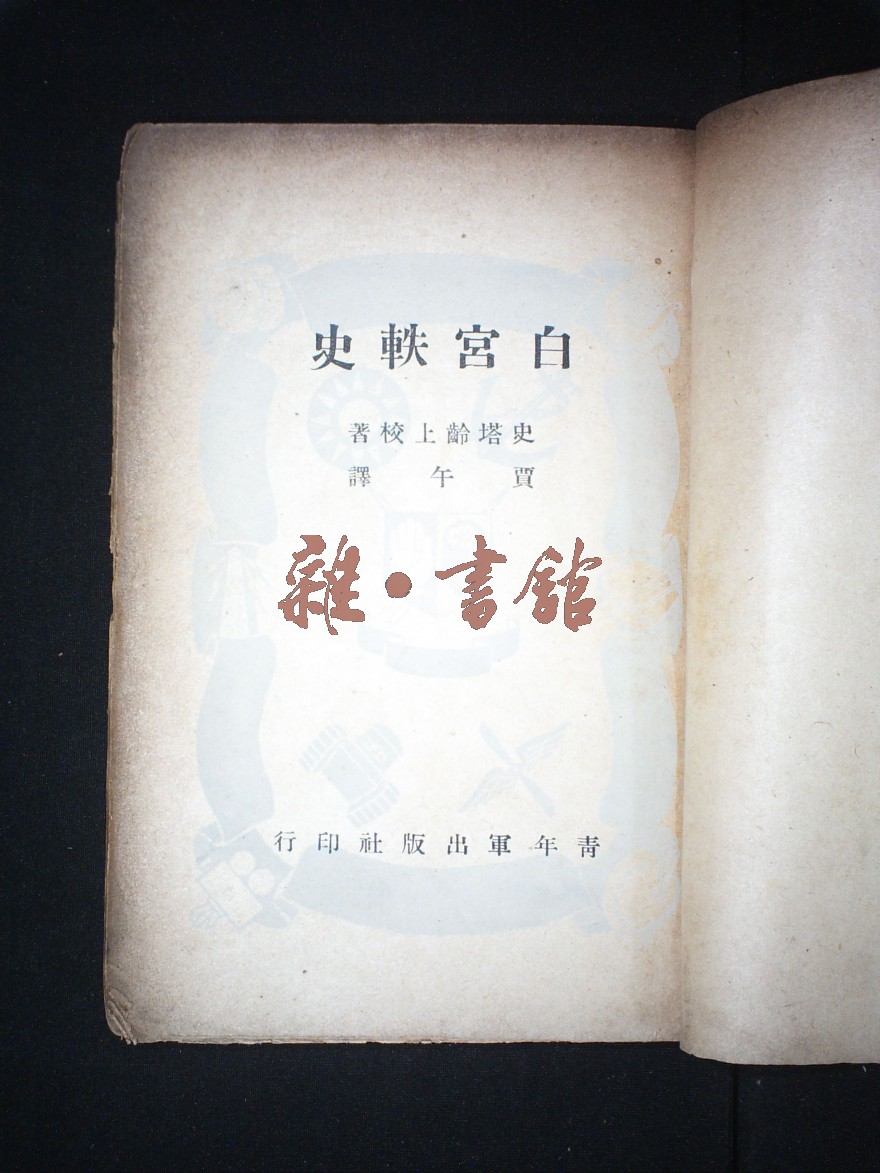 白宮軼史
史塔齡上校著
賈午譯
雜•書館
青年軍出版社印行